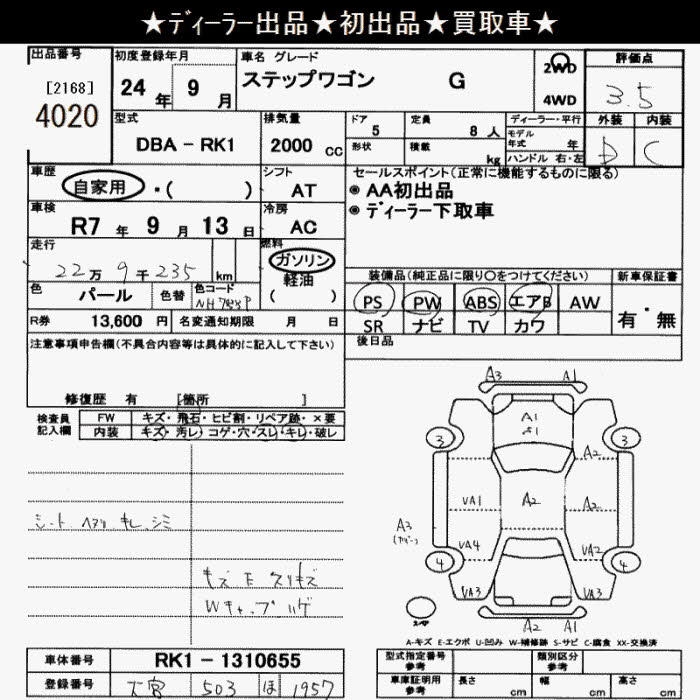 ★ディーラー出品★初出品★買取車★
出品番号
[2168]
4020
初度登録年月
24 年 9 月
車名 グレード
ステップワゴン G
2WD
4WD
評価点
3.5
型式
DBA - RK1
排気量
2000 CC
ドア
5
定員
8 人
形状
積載
kg
ディーラー・平行
モデル
年式 年
ハンドル 右・左
外装
D
内装
C
車歴
自家用 ・( )
シフト
AT
セールスポイント(正常に機能するものに限る)
◉ AA初出品
◉ ディーラー下取車
車検
R7 年 9 月 13 日
冷房
AC
走行
22 万 9 千 235 km
燃料
ガソリン
軽油
( )
装備品(純正品に限り○をつけてください)
PS PW ABS エアB AW
SR ナビ TV カワ
新車保証書
有・無
色
パール
色替
色コード
NH788P
R券 13,600 円
名変通知期限 月 日
後日品
注意事項申告欄(不具合内容等は具体的に記入して下さい)
修復歴 有 [箇所 ]
検査員
記入欄
FW キズ・飛石・ヒビ割・リペア跡・×要
内装 キズ・汚レ・コゲ・穴・スレ・キレ・破レ
シート ヘタリ キレ シミ
Wキャップ ハゲ
A3 A1
A1
3 3
A2
VA1 A2 A2
A3
VA4 VA2
4 4
VA3 VA3
A2 A1
スペア
A-キズ E-エクボ U-凹み W-補修跡 S-サビ C-腐食 XX-交換済
車体番号 RK1 - 1310655
登録番号 大宮 503 ほ 1957
型式指定番号
参考
類別区分
参考
車庫証明用
参考
長さ cm
幅 cm
高さ cm